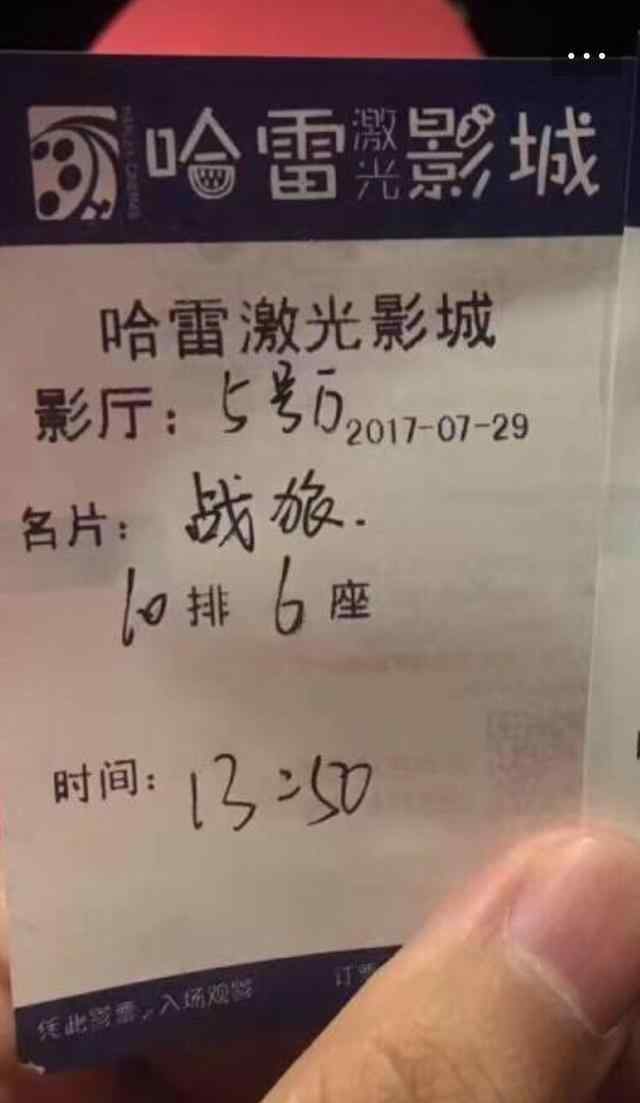 哈雷激光影城
哈雷激光影城
影厅：5号厅 2017-07-29
名片：战旅.
10排 6座
时间：13:50
凭此影票，入场观影 订票